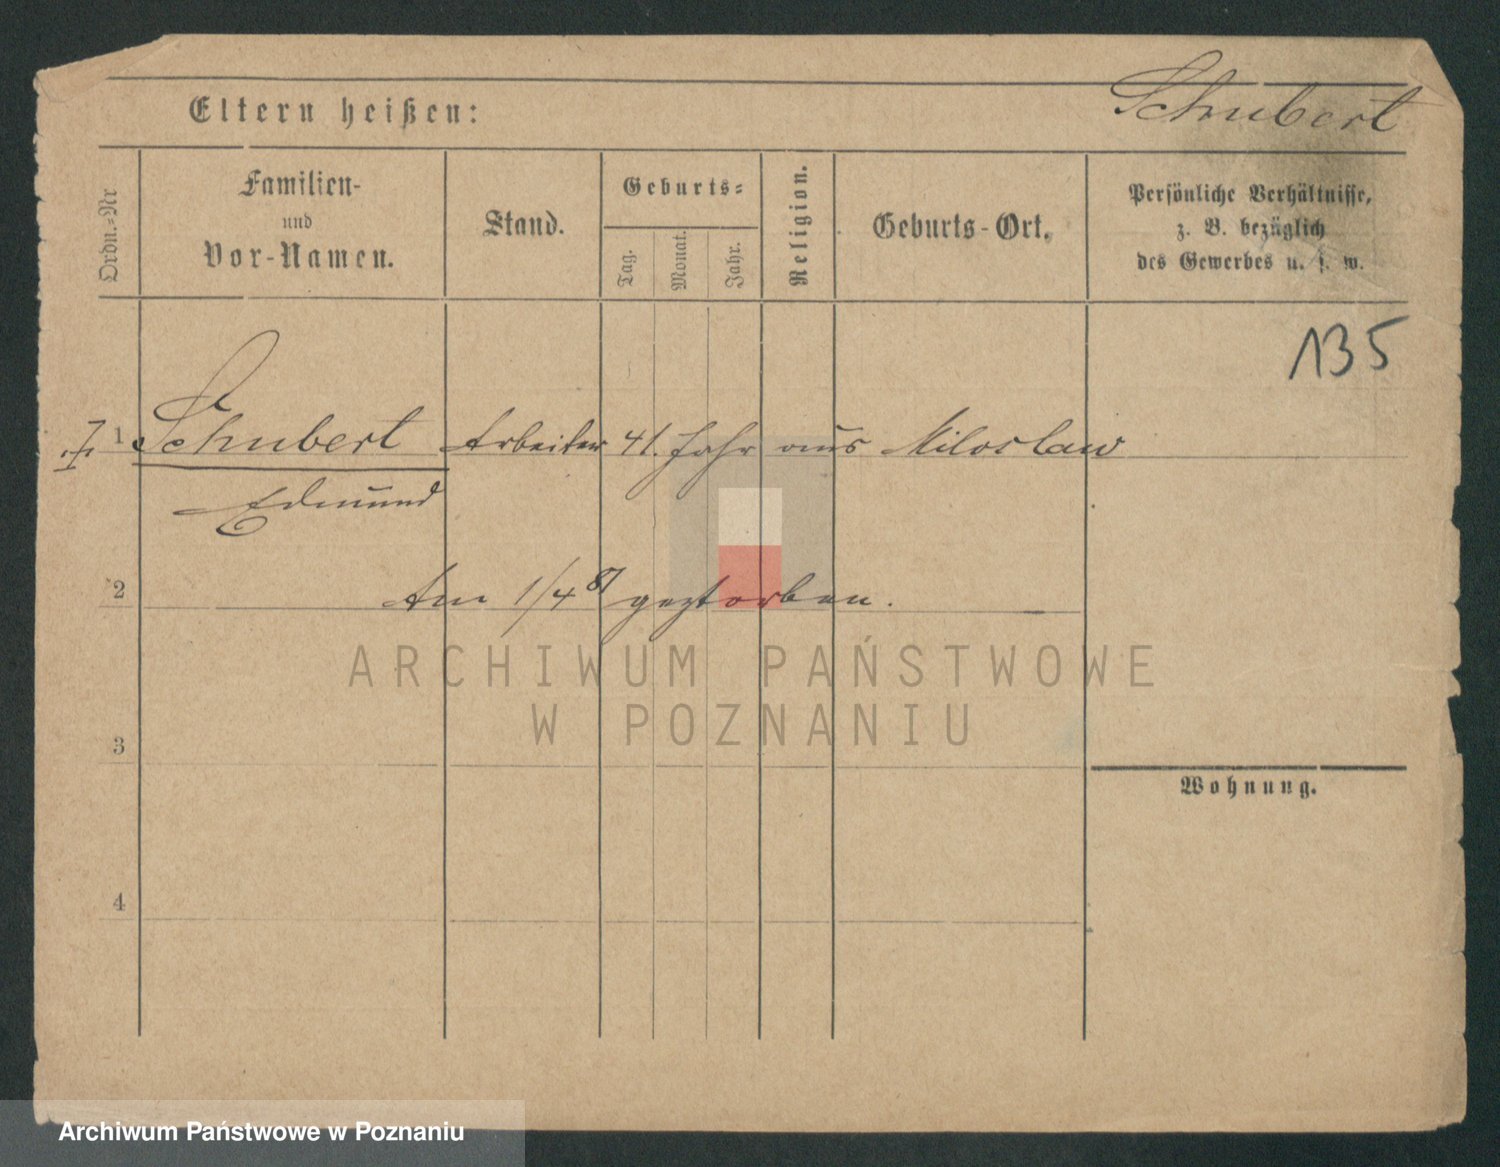 Schubert
Eltern heißen:
Ordn.-Nr
Familien-
und
Vor-Namen.
Stand.
Geburts-
Tag.
Monat.
Jahr.
Religion.
Geburts-Ort.
Persönliche Verhältnisse,
z. B. bezüglich
des Gewerbes u. s. w.
135
1 Schubert Arbeiter 41. Jahr aus Miloslaw
Edmund
2
Am 1/4 87 gestorben.
ARCHIWUM PAŃSTWOWE
W POZNANIU
3
Wohnung.
4
Archiwum Państwowe w Poznaniu